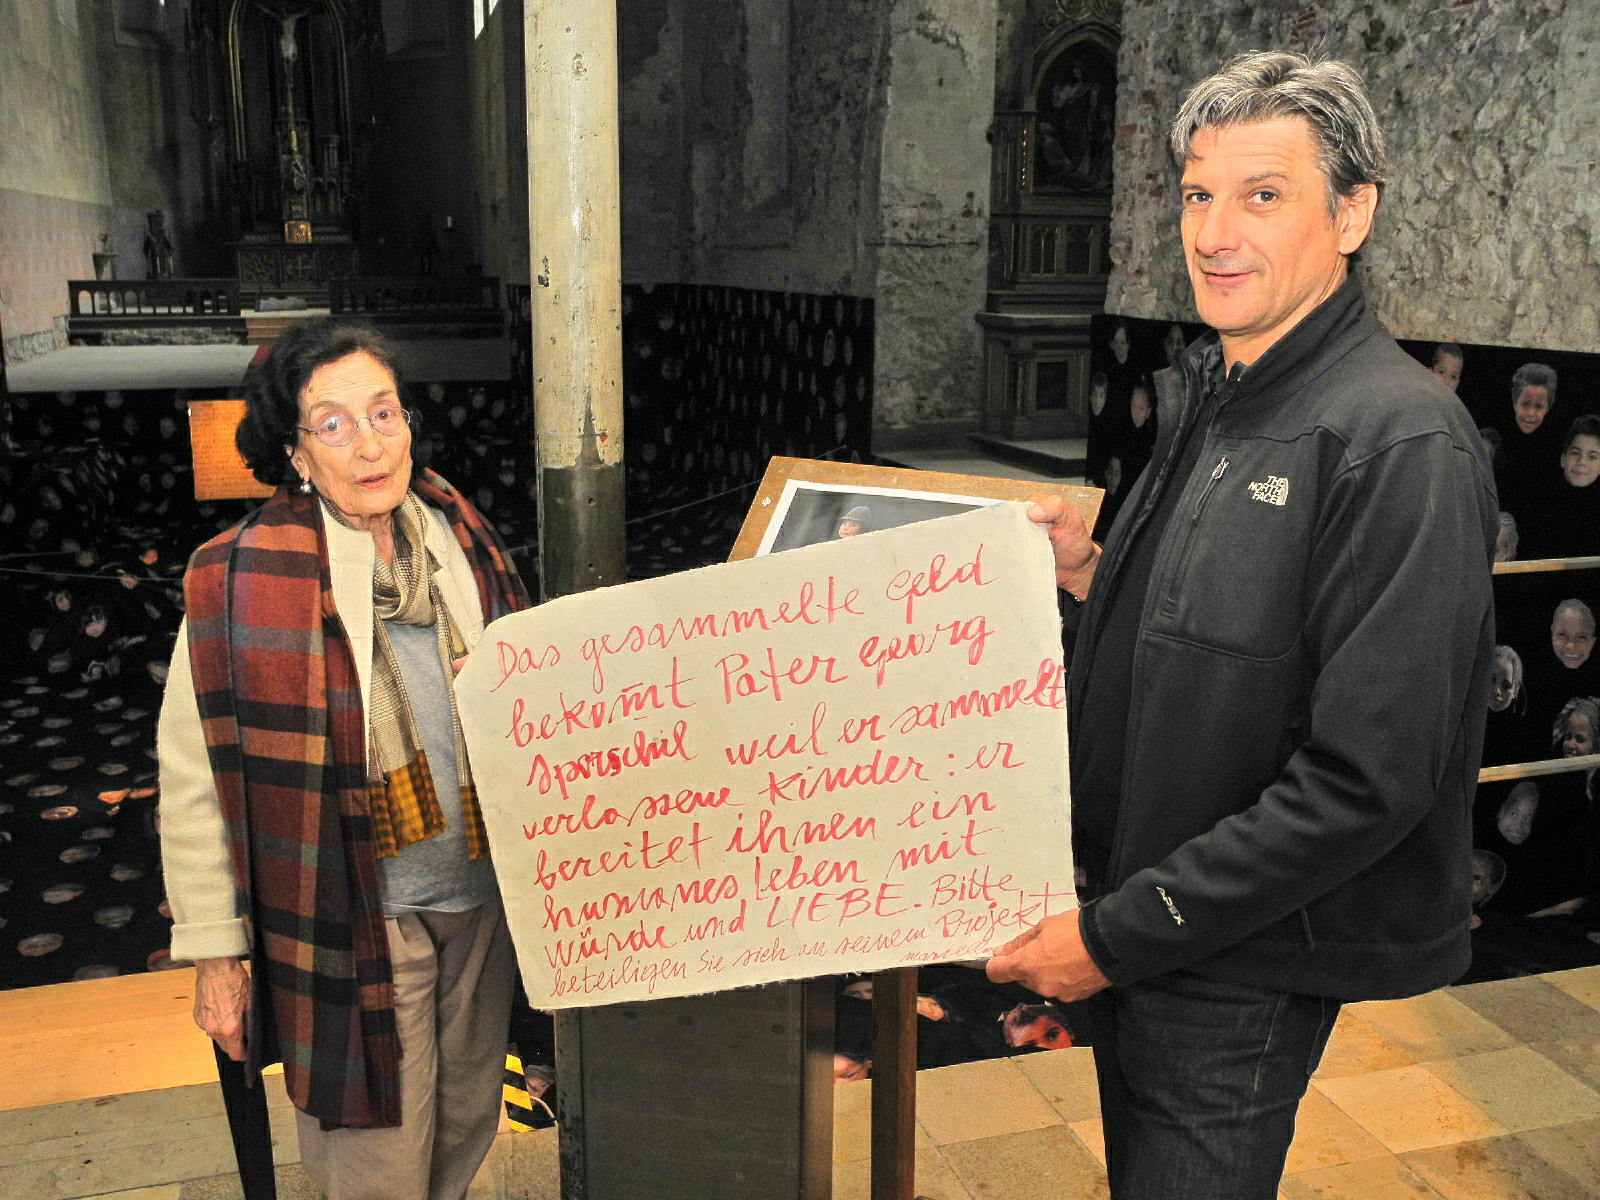 Das gesammelte Geld
bekom̅t Pater Georg
Sporschil weil er sammelt
verlassene Kinder: er
bereitet ihnen ein
humanes Leben mit
würde und LIEBE. Bitte
beteiligen Sie sich an seinem Projekt
THE
NORTH
FACE
APEX